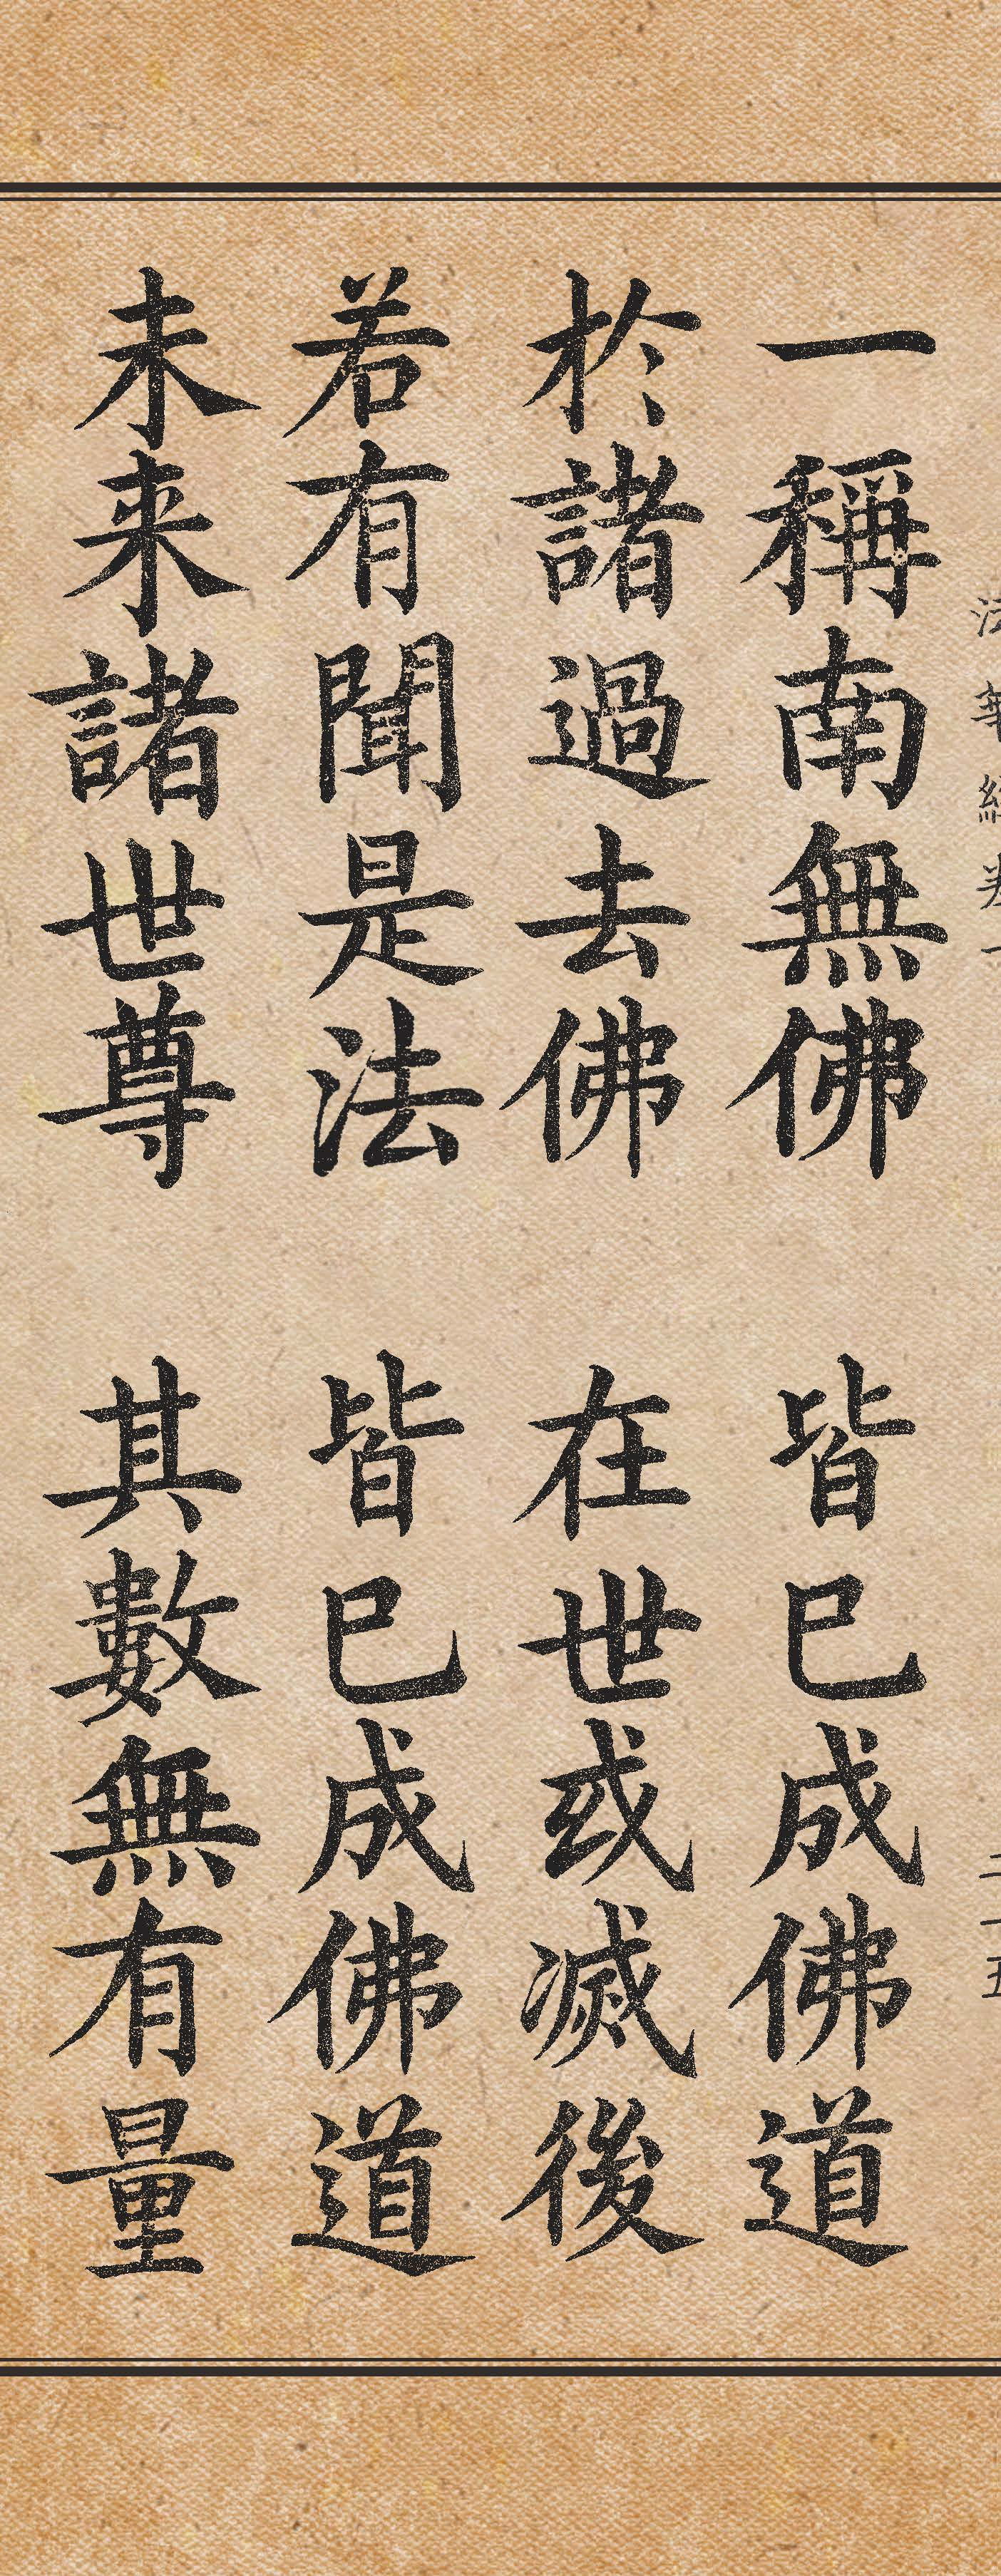 法華經卷一
二十五
一稱南無佛　皆已成佛道
於諸過去佛　在世或滅後
若有聞是法　皆已成佛道
未来諸世尊　其數無有量